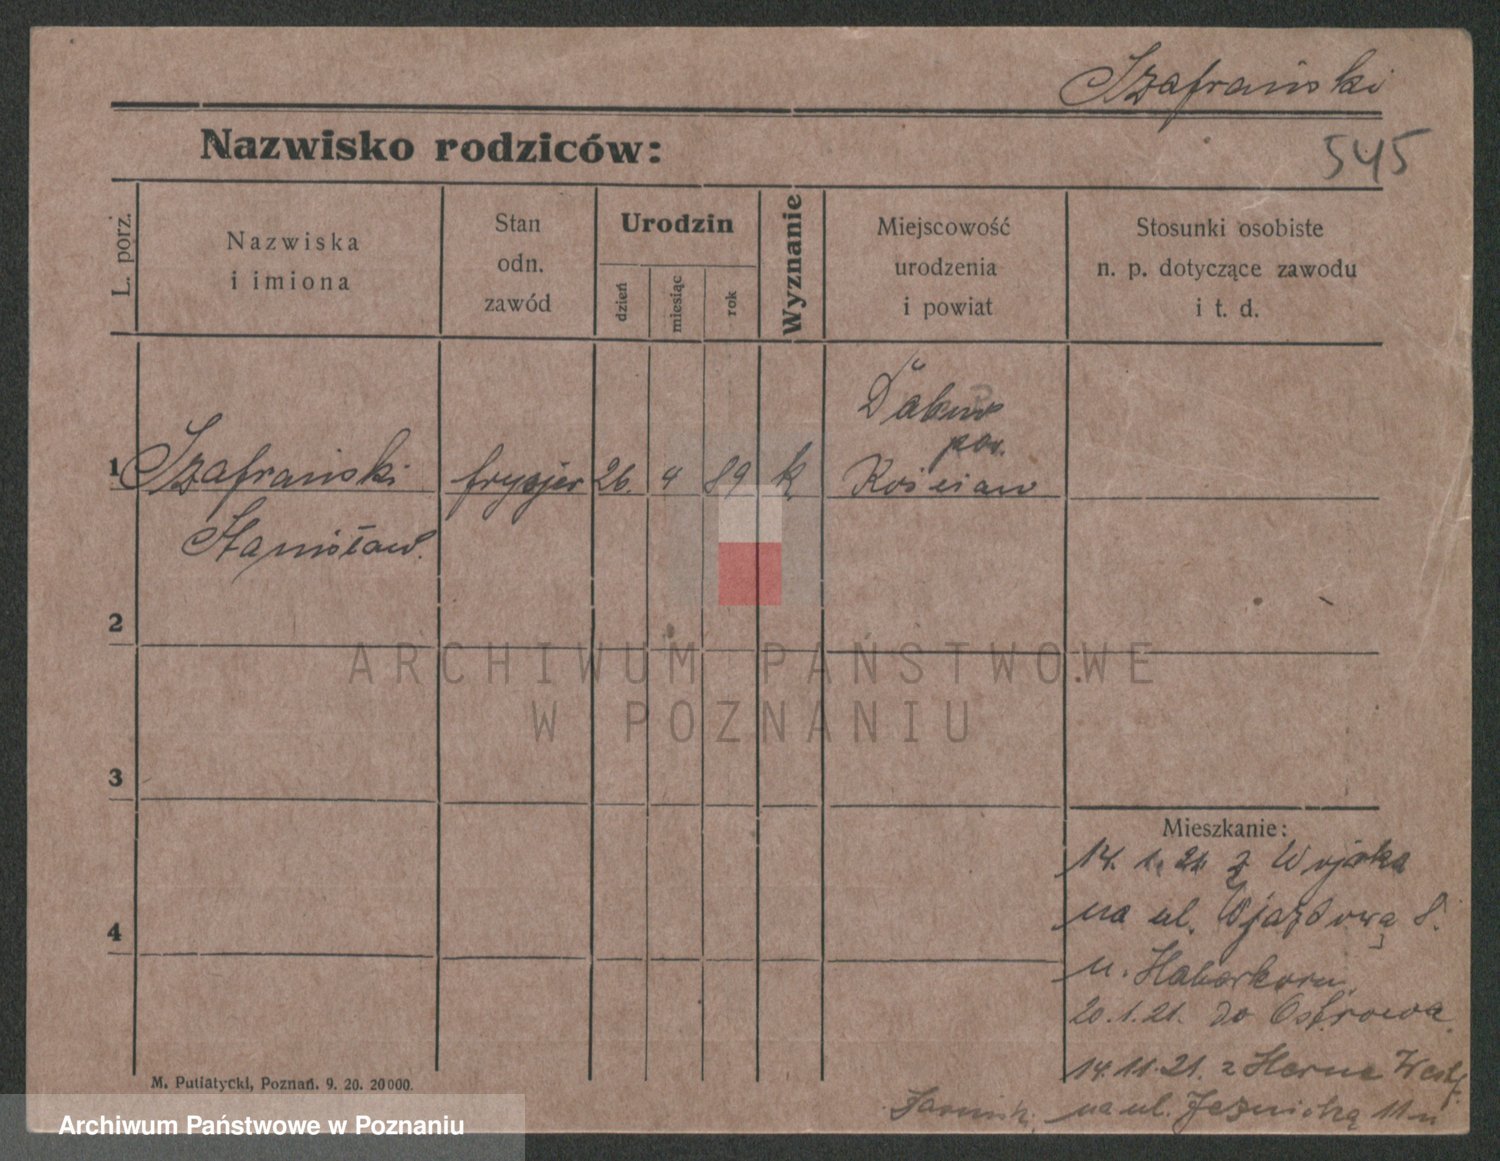 Szafrański
Nazwisko rodziców:
545
L. porz.
Nazwiska
i imiona
Stan
odn.
zawód
Urodzin
dzień
miesiąc
rok
Wyznanie
Miejscowość
urodzenia
i powiat
Stosunki osobiste
n. p. dotyczące zawodu
i t. d.
1
Szafrański
Stanisław.
fryzjer
26. 4 89
k
pow.
Kościan
2
3
4
ARCHIWUM PAŃSTWOWE
W POZNANIU
Mieszkanie:
14. 1. 21. z Wojska
na ul. Wjazdową 8.
u. Haberkorn.
20.1.21. do Ostrowa
14.11.21. z Herne Westf.
na ul. Jezuicką 11
M. Putiatycki, Poznań. 9. 20. 20000.
Archiwum Państwowe w Poznaniu